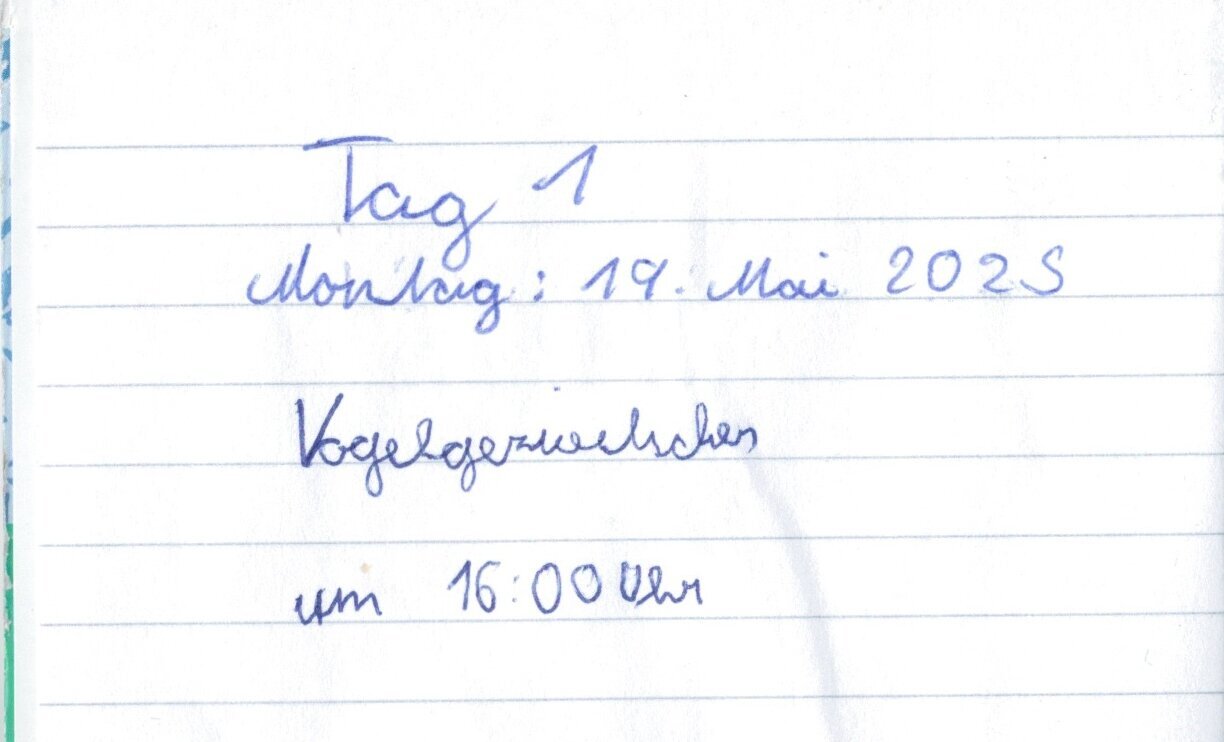 Tag 1
Montag: 19. Mai 2025
Vogelgezwitscher
um 16:00 Uhr